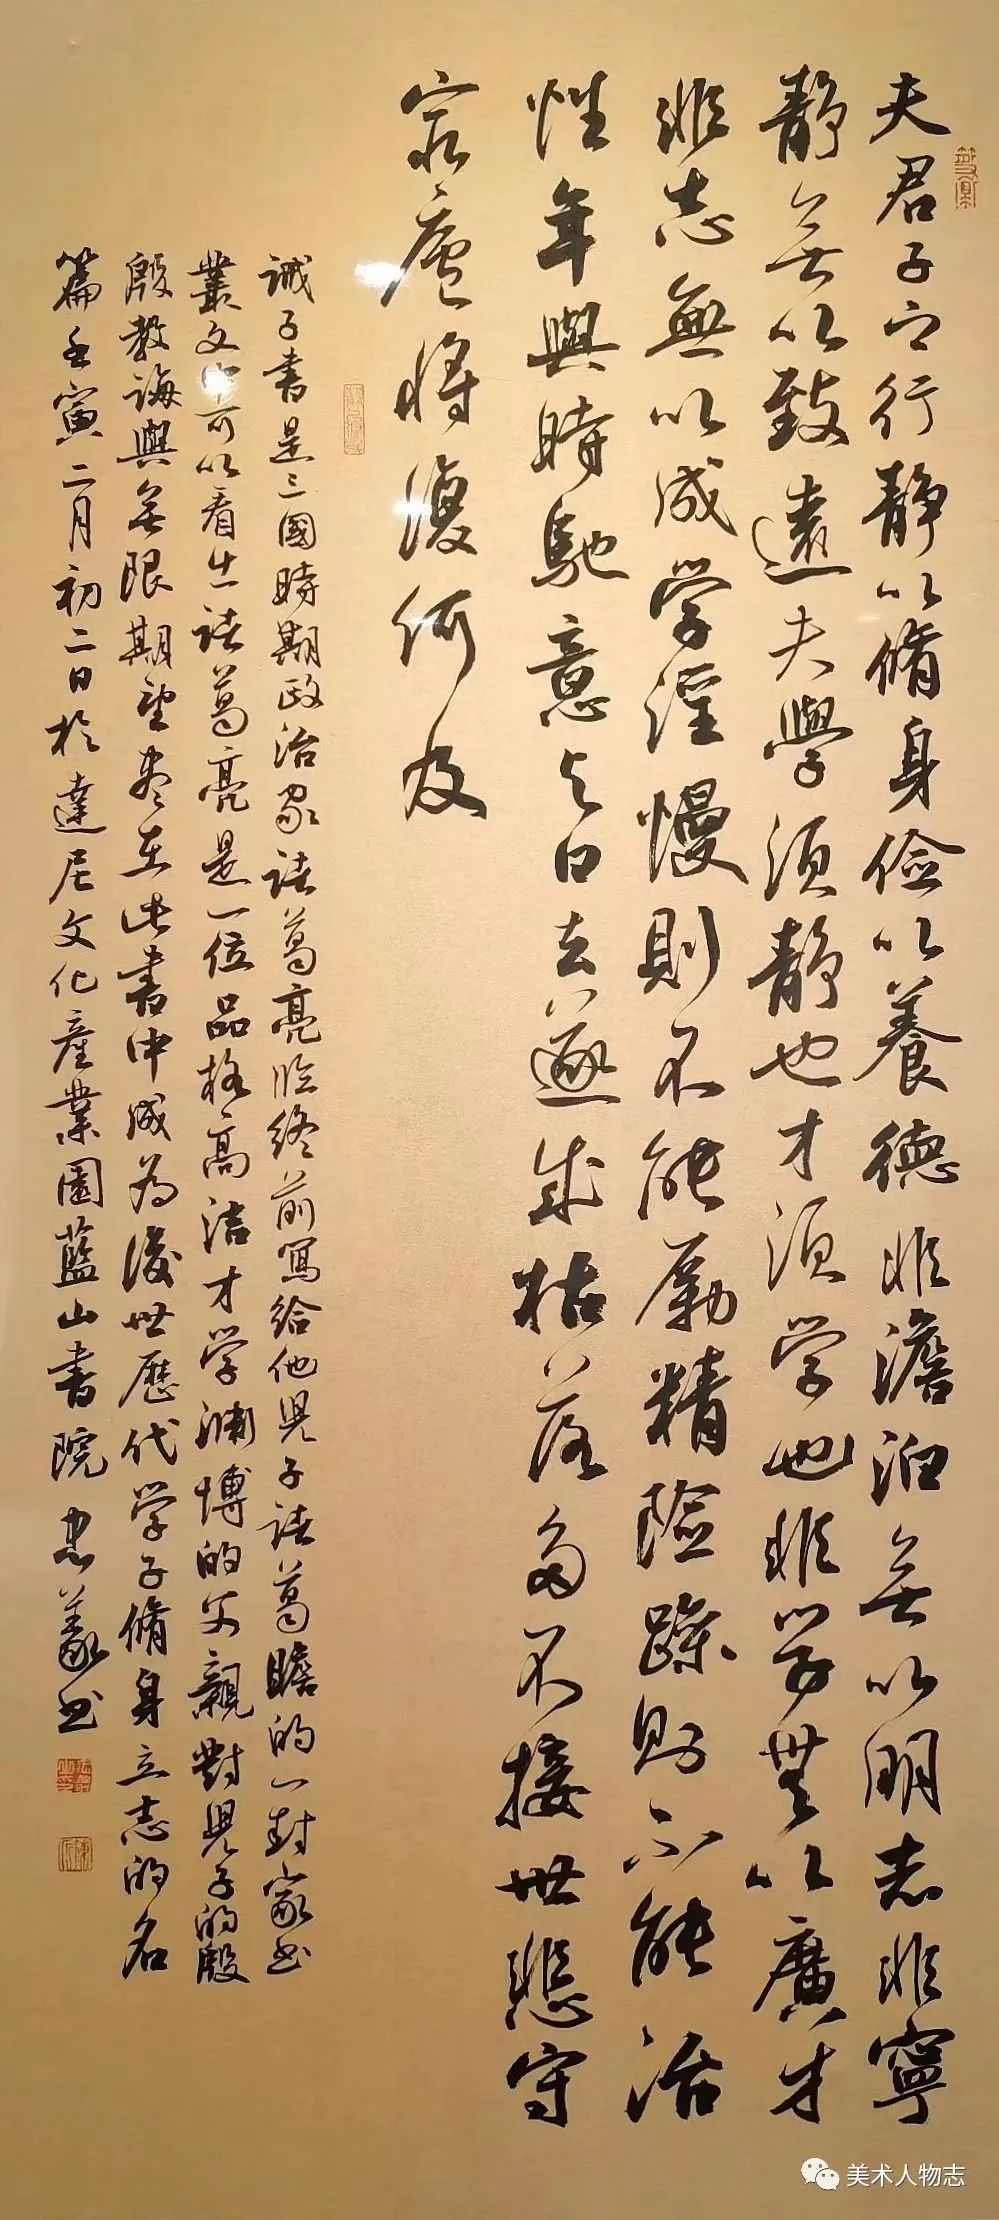 夫君子之行静以脩身俭以養德非澹泊无以明志非寧
静无以致遠夫學须静也才须学也非学無以廣才
非志無以成学淫慢則不能励精險躁则不能治
性年與時馳意与日去遂成枯落多不接世悲守
窮廬將復何及
誡子書是三國時期政治家诸葛亮临终前寫给他兒子诸葛瞻的一封家书
叢文中可以看出诸葛亮是一位品格高洁才学渊博的父親對兒子的殷
殷教诲與无限期望尽在此書中成为後世歷代学子脩身立志的名
篇壬寅二月初二日於達尼文化産業園藍山書院忠義书
美术人物志